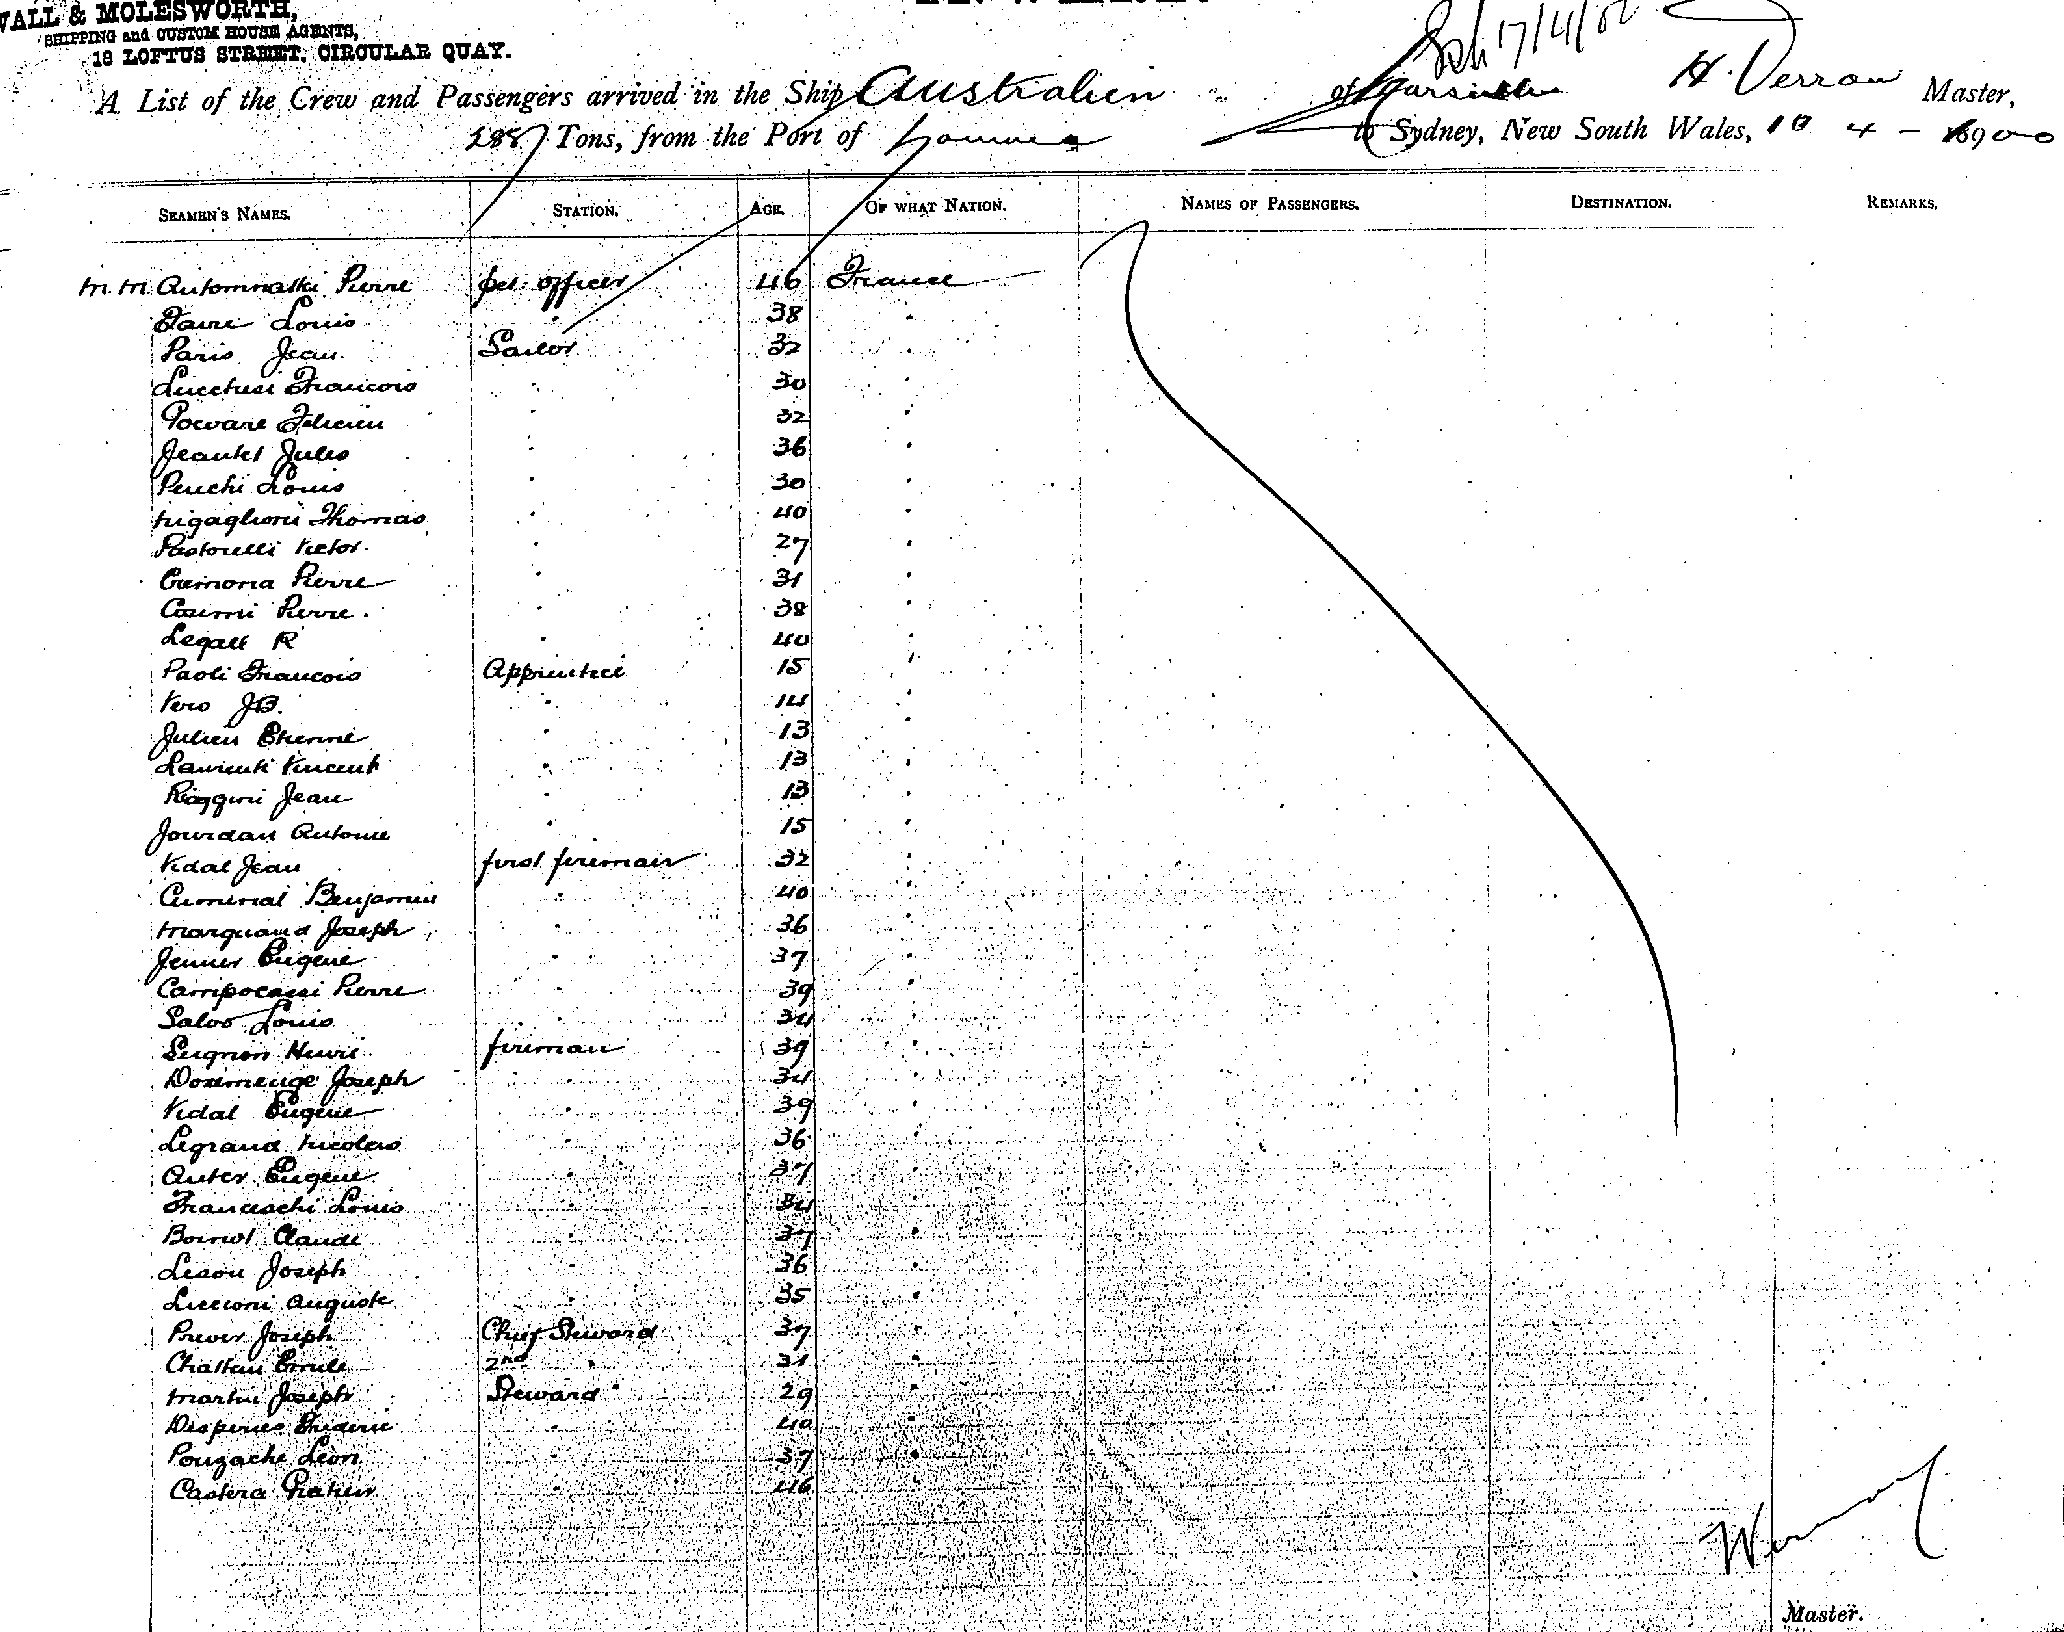 WALL & MOLESWORTH,
SHIPPING and CUSTOM HOUSE AGENTS,
18 LOFTUS STREET, CIRCULAR QUAY.
17/4/00
A List of the Crew and Passengers arrived in the Ship Australien of Marseilles H. Verron Master,
Tons, from the Port of to Sydney, New South Wales, 10 4 - 1900
SEAMEN'S NAMES. STATION. AGE. OF WHAT NATION. NAMES OF PASSENGERS. DESTINATION. REMARKS.
Pierre pet. officer 46 France
Favre Louis " 38 "
Paris Jean Sailor 32 "
Lucchesi Francois " 30 "
Felicien " 32 "
Jules " 36 "
Louis " 30 "
Thomas " 40 "
Pastorelli Victor " 27 "
Cremona Pierre " 31 "
Pierre " 38 "
Legall R " 40 "
Paoli Francois Apprentice 15 "
Vero JB. " 14 "
Julien Etienne " 13 "
Laurenti Vincent " 13 "
Jean " 13 "
Jourdan Antoine " 15 "
Vidal Jean first fireman 32 "
Benjamin " 40 "
Marquand Joseph " 36 "
Jenner Eugene " 37 "
Campocassi Pierre " 39 "
Salvo Louis " 34 "
Henri fireman 39 "
Joseph " 34 "
Vidal Eugene " 39 "
Legrand Nicolas " 36 "
Auter Eugene " 37 "
Franceschi Louis " 34 "
Claude " 37 "
Joseph " 36 "
Luccioni Auguste " 35 "
Prever Joseph Chief Steward 37 "
Emile 2nd " 31 "
Martin Joseph Steward " 29 "
Frederic " 40 "
Pougache Leon " 37 "
Castera " 46
Master.